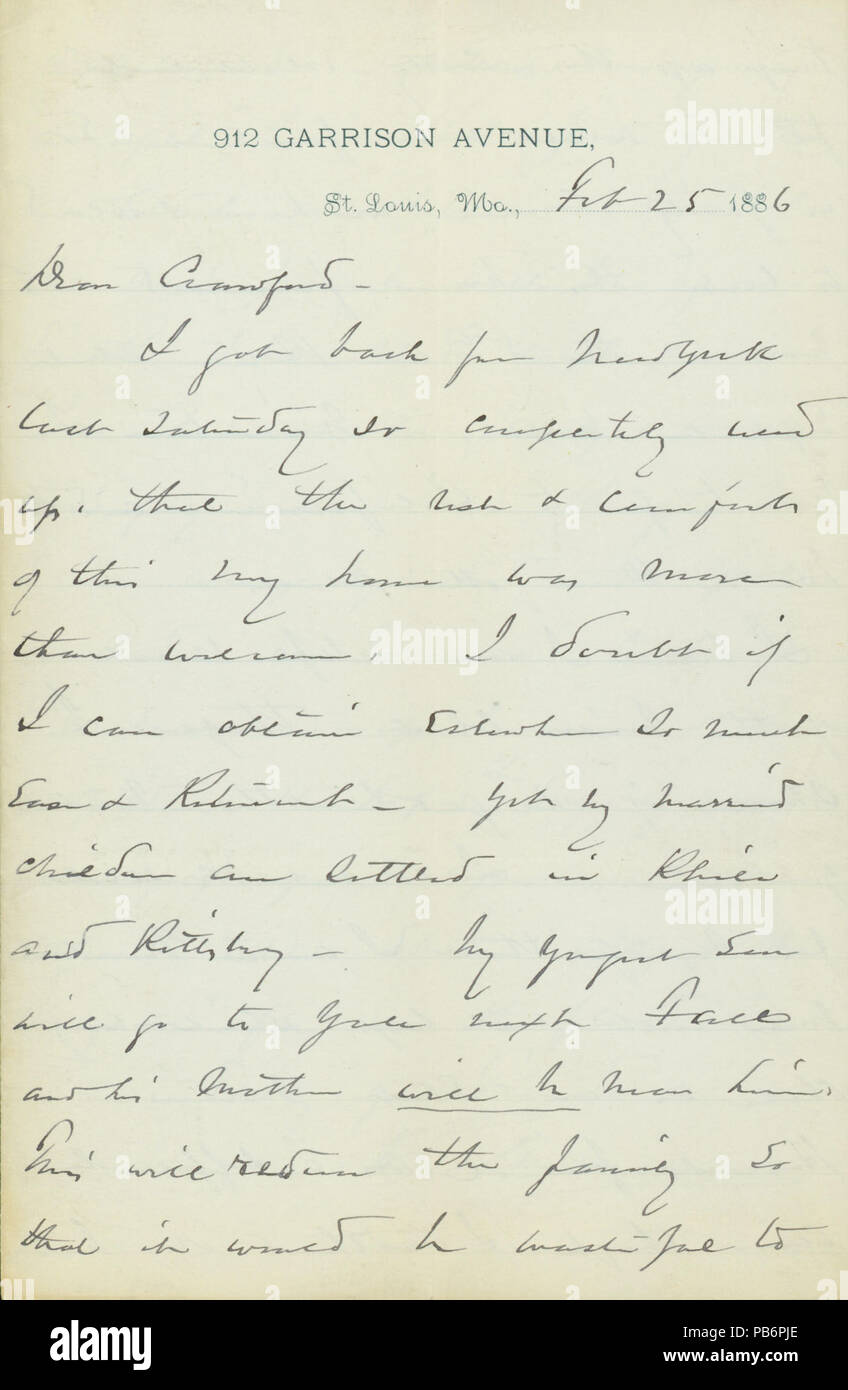 912 GARRISON AVENUE,
St. Louis, Mo., Feb 25 1886
Dear Crawford -
I got back from New York
last Saturday so completely used
up, that the rest & comforts
of this my home was more
than welcome. I doubt if
I can obtain Elsewhere so much
Ease & Retirement - Yet my married
children are settled in
and Pittsburg - My youngest Son
will go to Yale next Fall
and his Mother will be near him.
This will reduce the family so
that it would be wasteful to
alamy
alamy
Image ID: PB6PJE
www.alamy.com